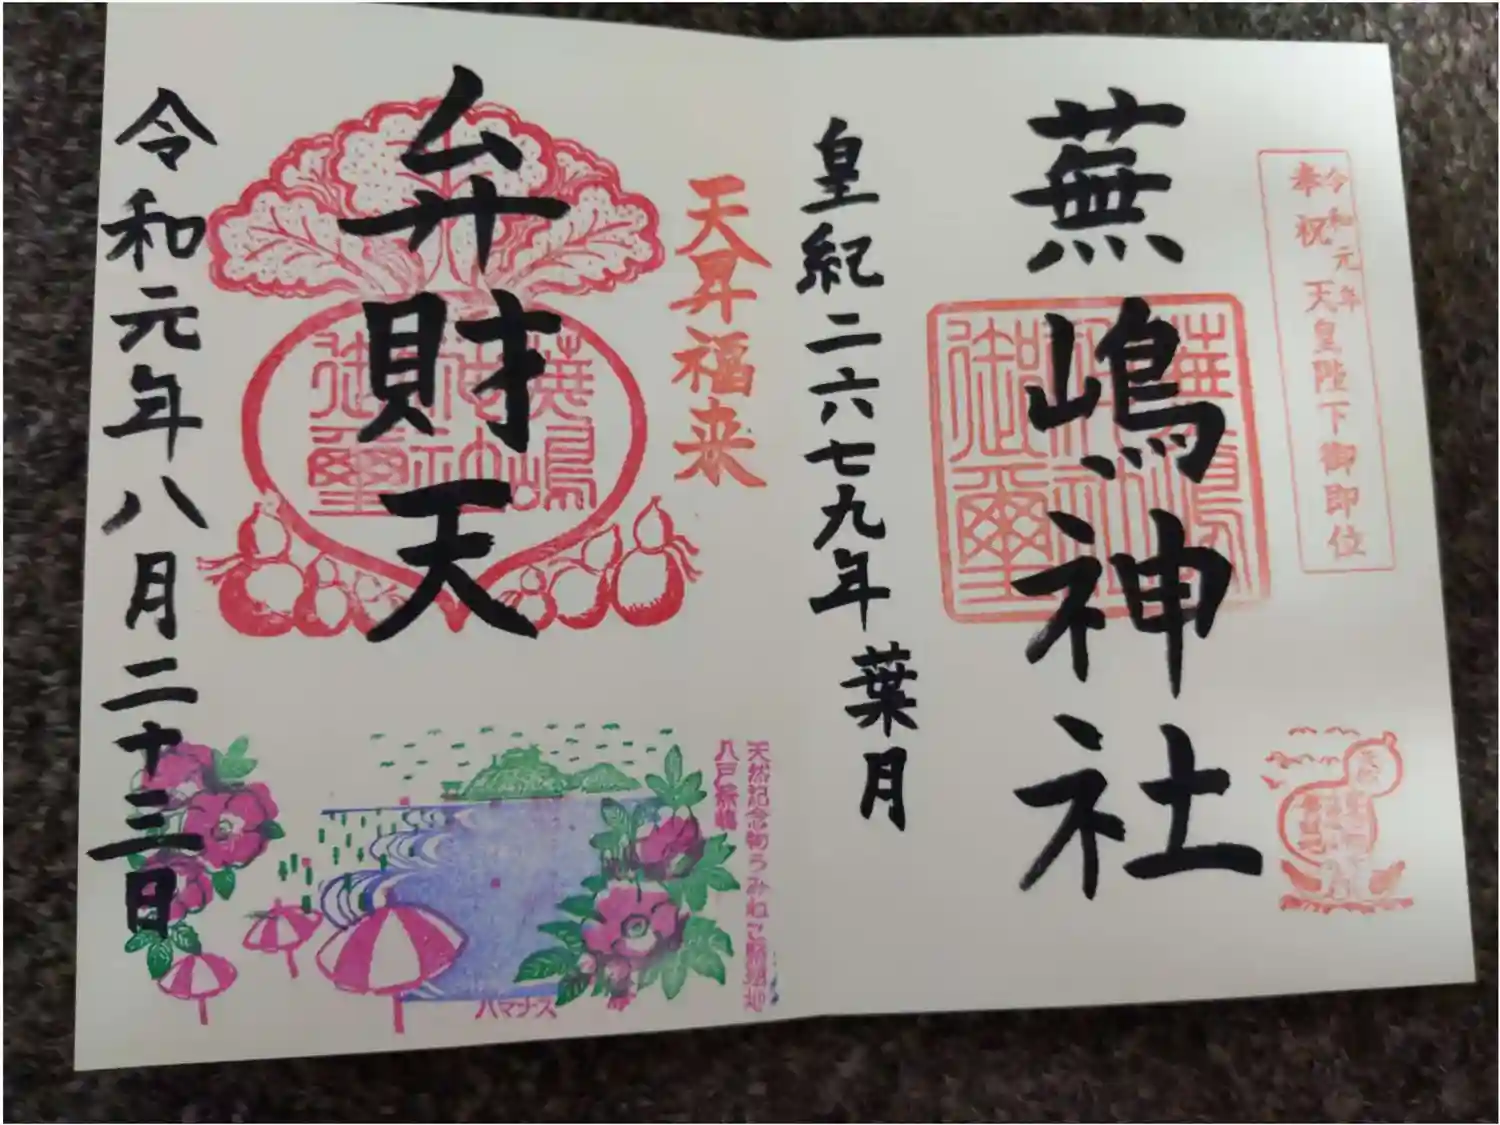 奉祝
令和元年
天皇陛下御即位
蕪嶋神社
蕪嶋
神社
御璽
皇紀二六七九年
葉月
天昇福来
弁財天
蕪嶋
神社
御璽
令和元年八月二十三日
天然記念物うみねこ繁殖地
八戸蕪嶋
ハマナス